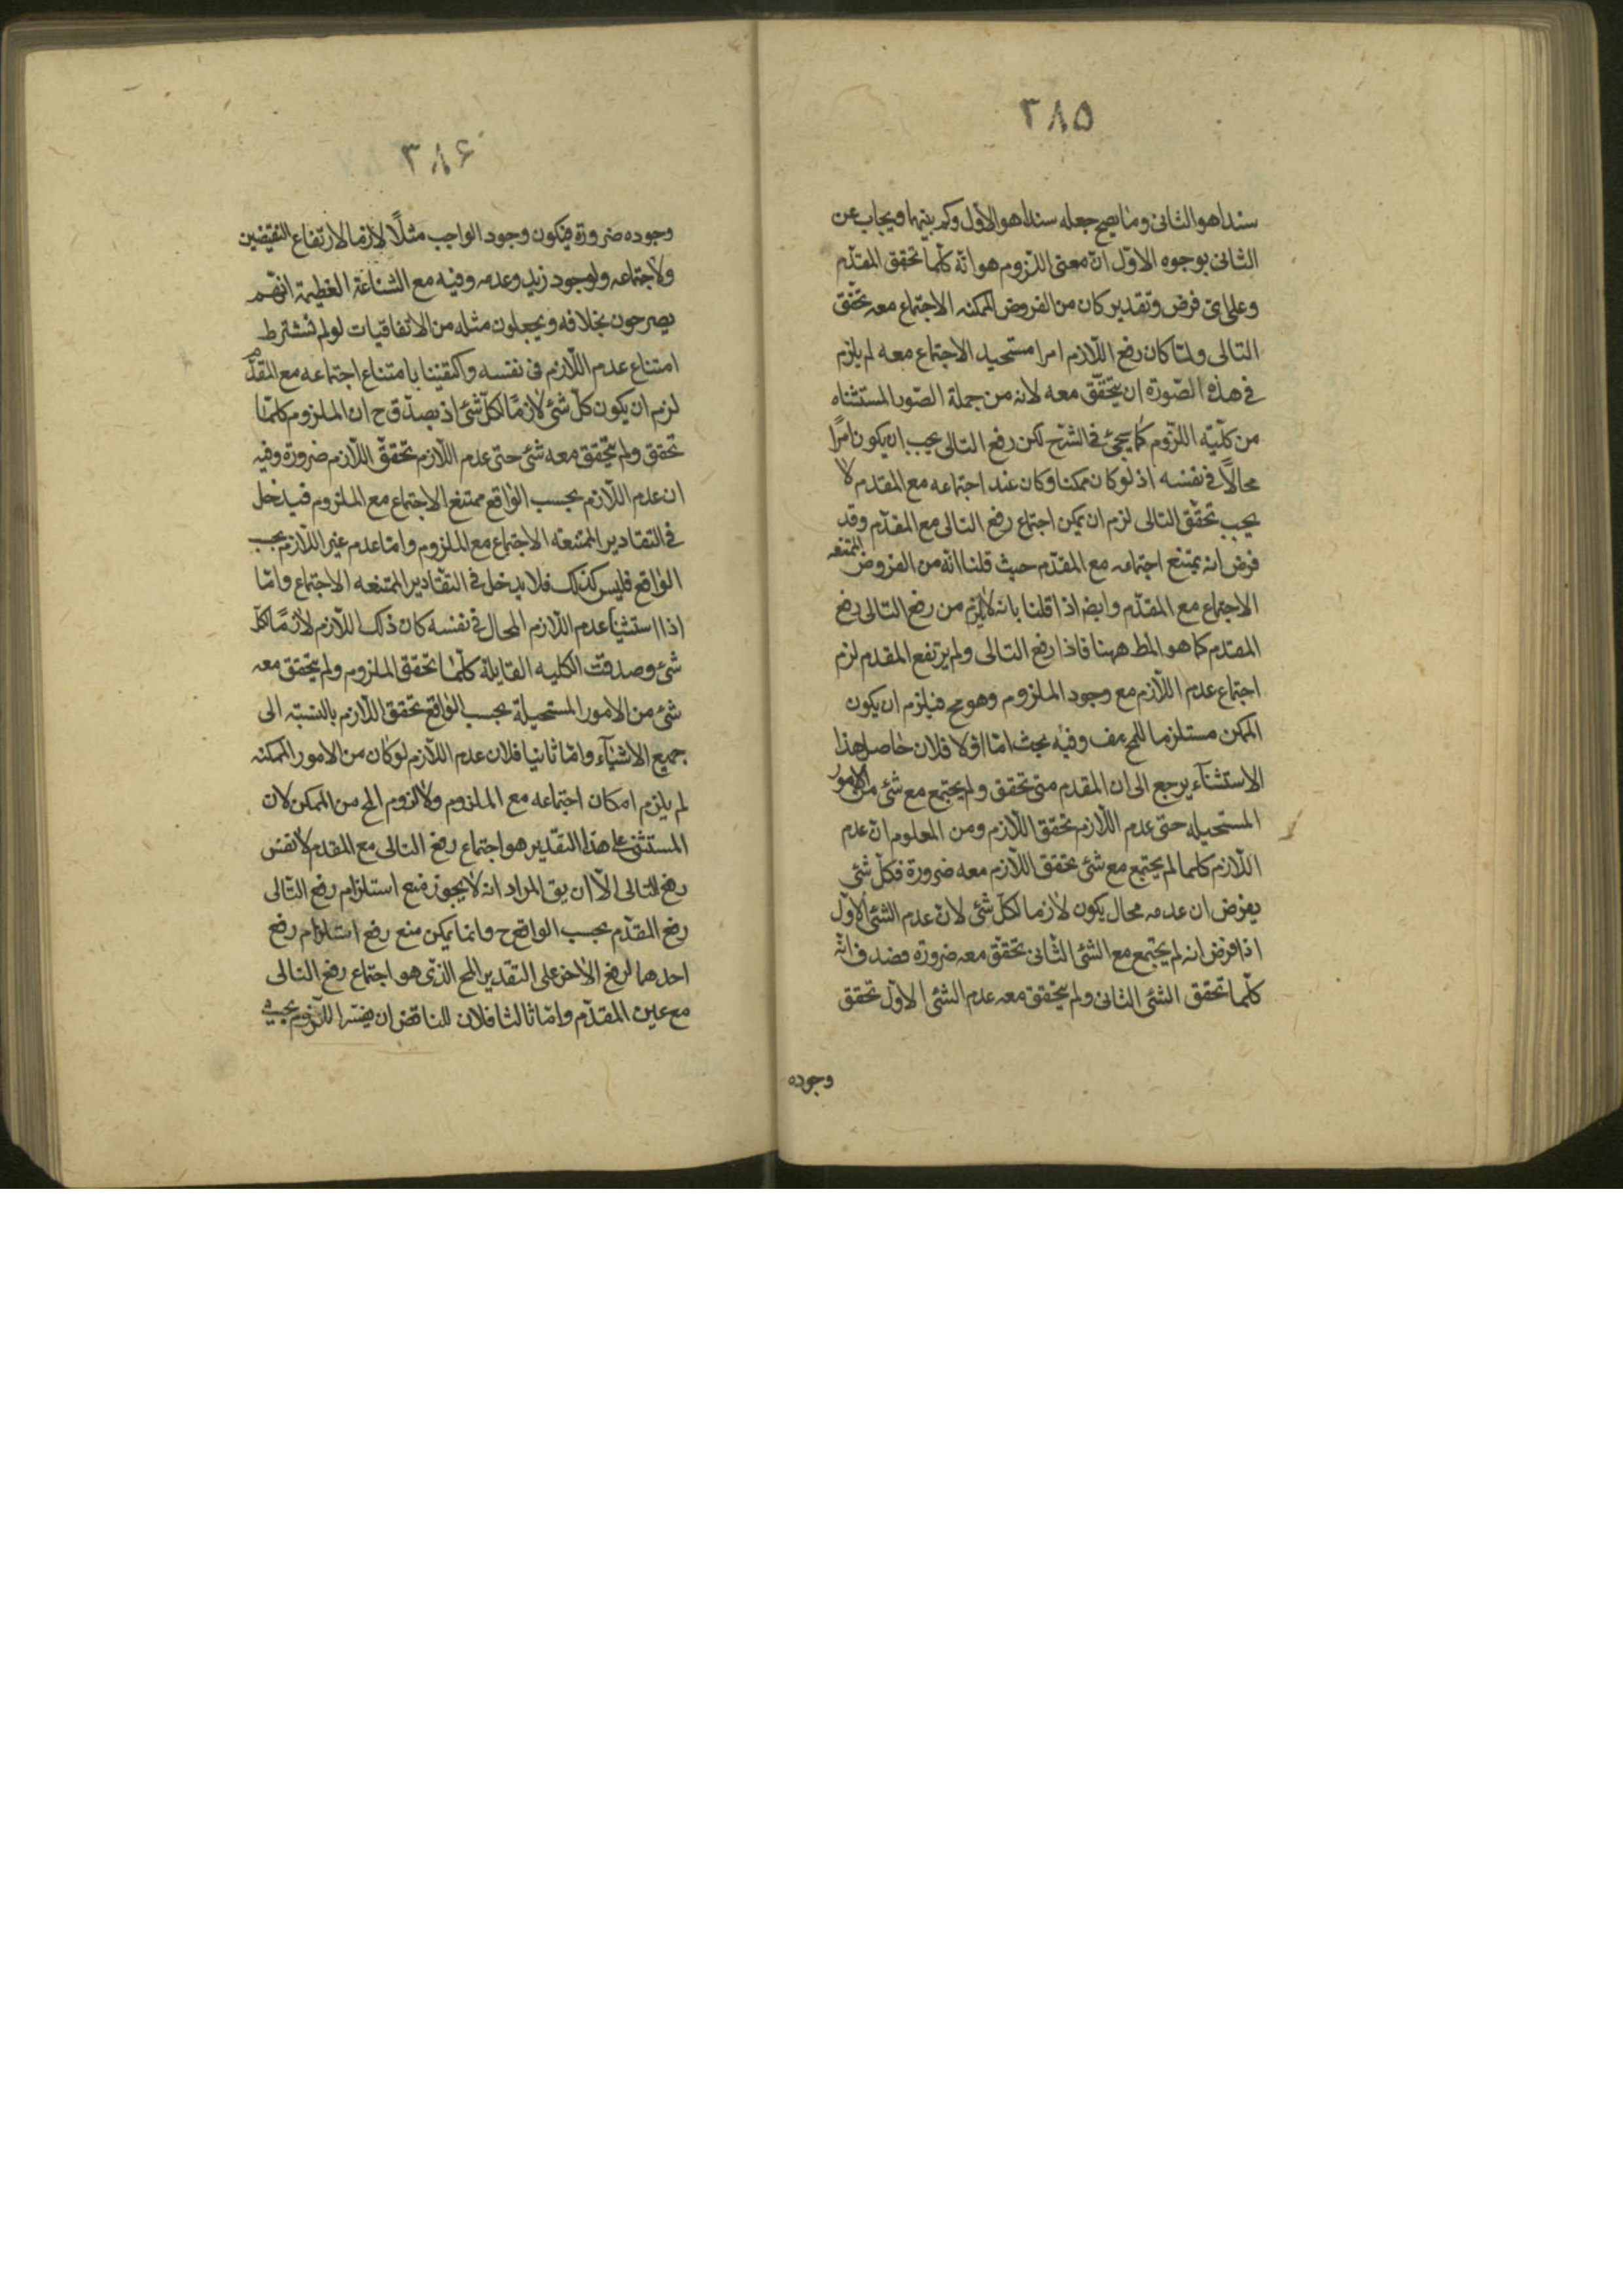 ٣٨٥
سندا هو الثانى وما يصح جعله سندا هو الاول وكم بينهما ويجاب عن
الثانى بوجوه الاوّل انّ معنى اللزوم هو انّه كلّما تحقق المقدّم
وعلى اىّ فرض وتقدير كان من الفروض الممكنه الاجتماع معه تحقّق
التالى ولمّا كان رفع اللّازم امرا مستحيل الاجتماع معه لم يلزم
فى هذه الصّورة ان يتحقّق معه لانه من جملة الصّور المستثناه
من كليّه اللزوم كما يجئ فى الشرح لكن رفع التالى يجب ان يكون امرًا
محالًا فى نفسه اذ لو كان ممكنا وكان عند اجتماعه مع المقدم لا
يجب تحقّق التالى لزم ان يمكن اجتماع رفع التالى مع المقدّم وقد
فرض انه يمتنع اجتماعه مع المقدّم حيث قلنا انّه من الفروض الممتنعه
الاجتماع مع المقدّم وايضا اذا قلنا بانه لا يلزم من رفع التالى رفع
المقدّم كما هو المط ههنا فاذا رفع التالى ولم يرتفع المقدم لزم
اجتماع عدم اللّازم مع وجود الملزوم وهو مح فيلزم ان يكون
الممكن مستلزما للمح هف وفيه بحث امّا اوّلا فلان حاصل هذا
الاستثنآء يرجع الى ان المقدم متى تحقق ولم يجتمع مع شئ من الامور
المستحيله حتى عدم اللّازم تحقق اللّازم ومن المعلوم انّ عدم
اللّازم كلما لم يجتمع مع شئ تحقق اللّازم معه ضرورة فكلّ شئ
يفرض ان عدمه محال يكون لازما لكلّ شئ لانّ عدم الشئ الاوّل
اذا فرض انه لم يجتمع مع الشئ الثانى تحقّق معه ضرورة فصدق انّه
كلّما تحقق الشئ الثانى ولم يتحقق معه عدم الشئ الاوّل تحقق
وجوده
٣٨۶
وجوده ضرورة فيكون وجود الواجب مثلًا لازما لارتفاع النقيضين
ولاجتماعه ولوجود زيد وعدمه وفيه مع الشناعة العظيمة انهم
يصرحون بخلافه ويجعلون مثله من الاتفاقيات لو لم نشترط
امتناع عدم اللّازم فى نفسه واكتفينا بامتناع اجتماعه مع المقدّم
لزم ان يكون كلّ شئ لازمًا لكلّ شئ اذ يصدق ح ان الملزوم كلّما
تحقق ولم يتحقق معه شئ حتى عدم اللّازم تحقّق اللّازم ضرورة وفيه
ان عدم اللّازم بحسب الواقع ممتنع الاجتماع مع الملزوم فيدخل
فى التقادير الممتنعه الاجتماع مع الملزوم وامّا عدم غير اللّازم بحسب
الواقع فليس كذلك فلا يدخل فى التقادير الممتنعه الاجتماع وامّا
اذا استثنينا عدم اللّازم المحال فى نفسه كان ذلك اللّازم لازمًا لكلّ
شئ وصدقت الكليه القايلة كلّما تحقق الملزوم ولم يتحقق معه
شئ من الامور المستحيلة بحسب الواقع تحقق اللّازم بالنسبّه الى
جميع الاشيآء وامّا ثانيا فلان عدم اللّازم لو كان من الامور الممكنه
لم يلزم امكان اجتماعه مع الملزوم ولا لزوم المح من الممكن لان
المستثنى على هذا التقدير هو اجتماع رفع التالى مع المقدم لا نفس
رفع التالى الّا ان يق المراد انه لا يجوز منع استلزام رفع التّالى
رفع المقدّم بحسب الواقع ح وانما يمكن منع رفع استلزام رفع
احدهما لرفع الاخر على التقدير المح الذى هو اجتماع رفع التالى
مع عين المقدّم وامّا ثالثا فلان للناقض ان يفسّر اللّزوم بحيث